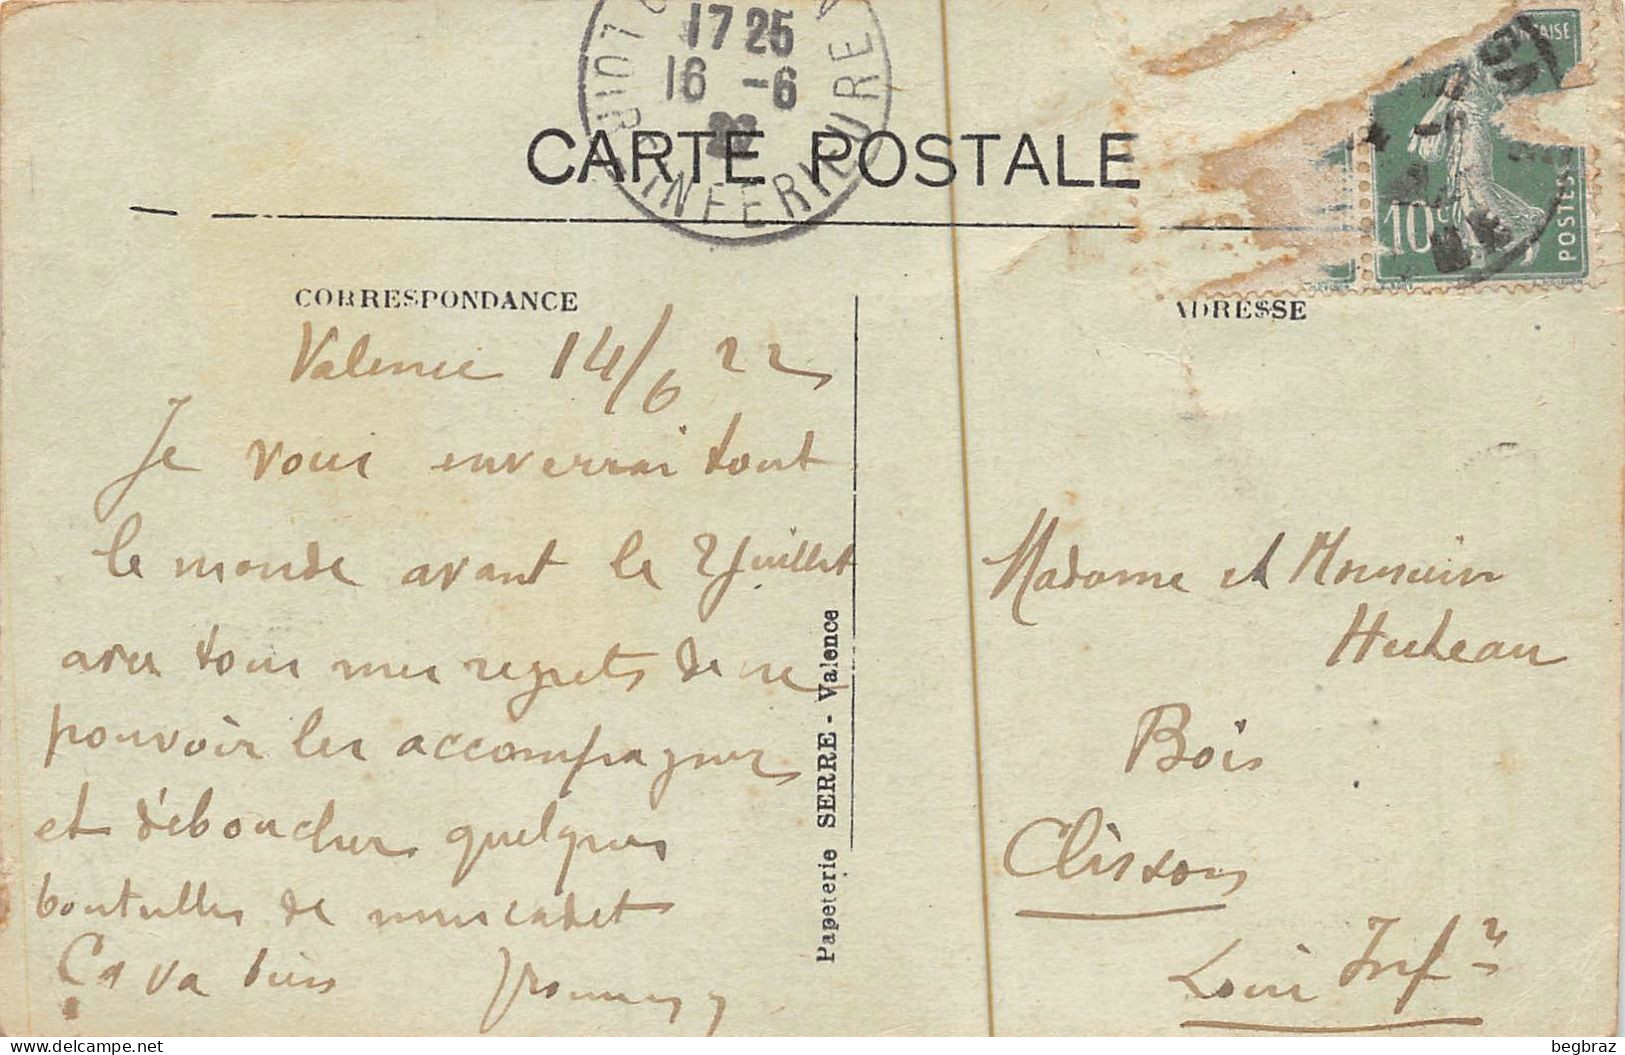 17 25
16 -6
22
LOIRE INFERIEURE
CARTE POSTALE
10c
POSTES
CORRESPONDANCE
ADRESSE
Valence 14/6 22
Je vous enverrai tout
le monde avant le 2 Juillet
avec tous mes regrets de ne
pouvoir les accompagner
et déboucher quelques
bouteilles de muscadet
Ca va bien
Papeterie SERRE - Valence
Madame et Monsieur
Huteau
Bois
Clisson
Loire Infre
begbraz